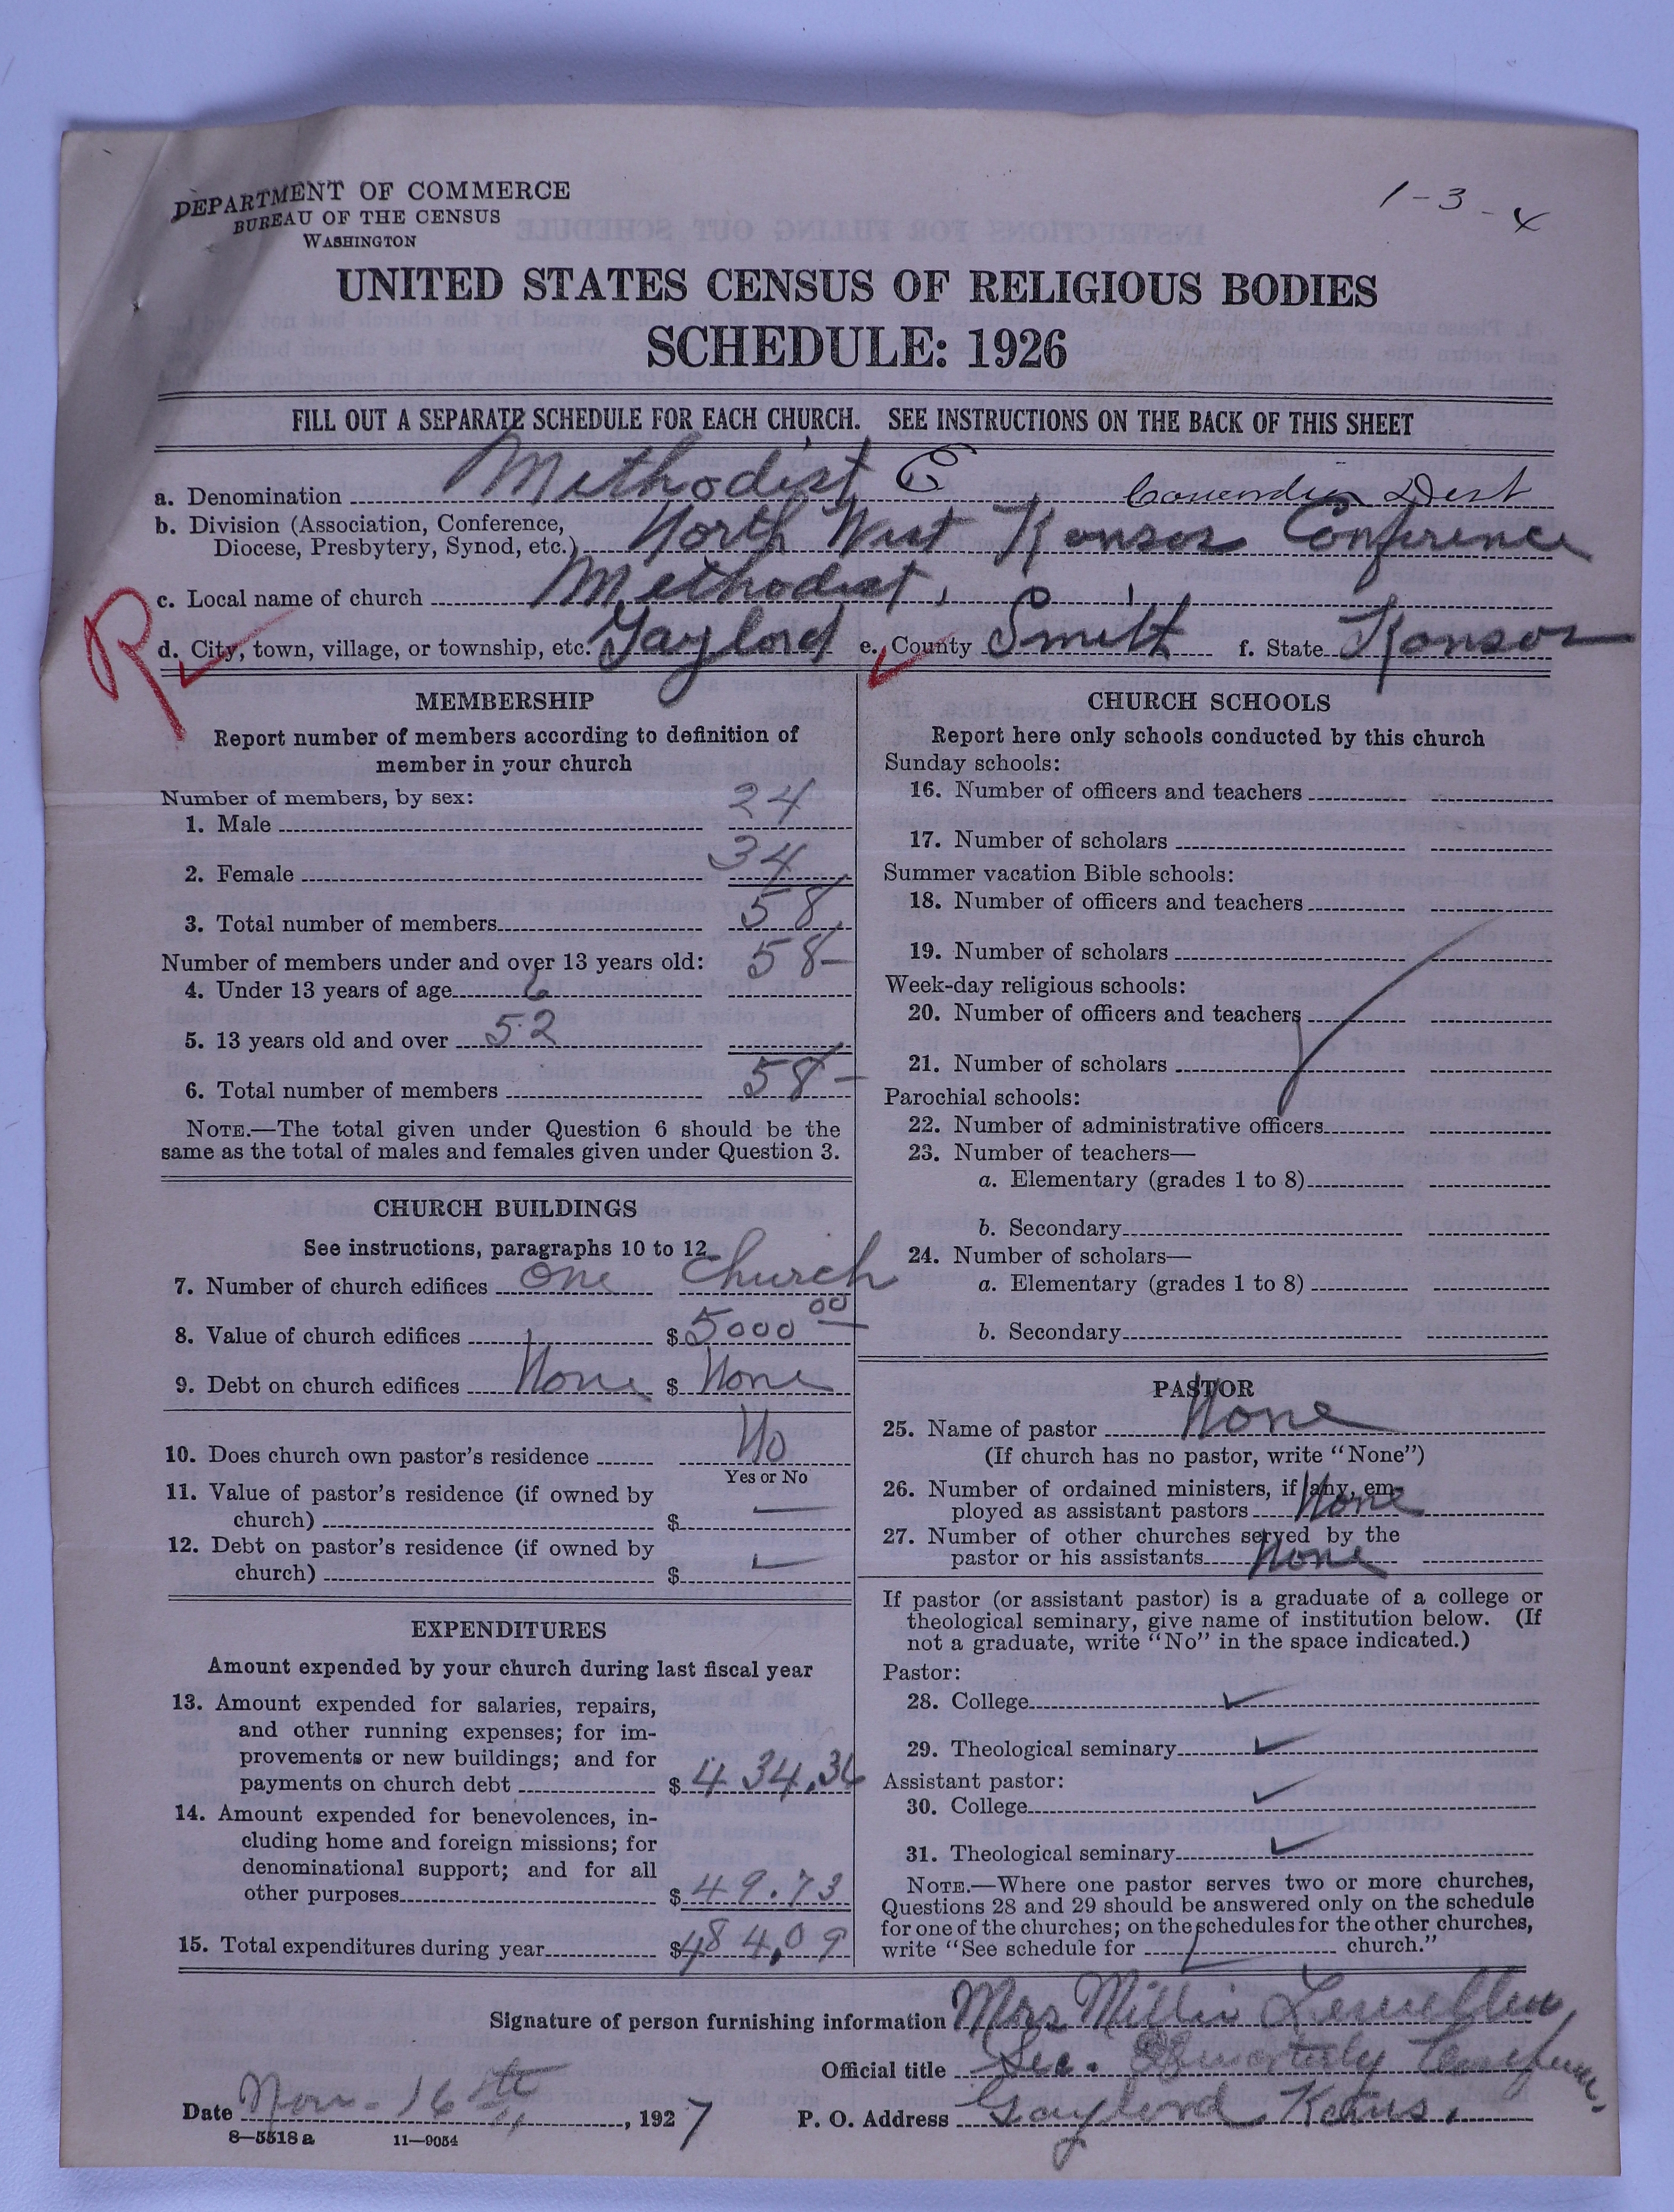 1-3-4
DEPARTMENT OF COMMERCE
BUREAU OF THE CENSUS
WASHINGTON
UNITED STATES CENSUS OF RELIGIOUS BODIES
SCHEDULE: 1926
FILL OUT A SEPARATE SCHEDULE FOR EACH CHURCH. SEE INSTRUCTIONS ON THE BACK OF THIS SHEET
a. Denomination Methodist E Dist
b. Division (Association, Conference,
Diocese, Presbytery, Synod, etc.) North West Kansas Conference
c. Local name of church Methodist
R d. City, town, village, or township, etc. Gaylord e. County Smith f. State Kansas
MEMBERSHIP
Report number of members according to definition of
member in your church
Number of members, by sex:
1. Male 24
2. Female 34
3. Total number of members 58
Number of members under and over 13 years old: 58-
4. Under 13 years of age 6
5. 13 years old and over 52
6. Total number of members 58-
NOTE.—The total given under Question 6 should be the
same as the total of males and females given under Question 3.
CHURCH BUILDINGS
See instructions, paragraphs 10 to 12
7. Number of church edifices One Church
8. Value of church edifices $ 5000 00
9. Debt on church edifices None $ None
10. Does church own pastor's residence No
Yes or No
11. Value of pastor's residence (if owned by
church) $ —
12. Debt on pastor's residence (if owned by
church) $
EXPENDITURES
Amount expended by your church during last fiscal year
13. Amount expended for salaries, repairs,
and other running expenses; for im-
provements or new buildings; and for
payments on church debt $ 434.36
14. Amount expended for benevolences, in-
cluding home and foreign missions; for
denominational support; and for all
other purposes $ 49.73
15. Total expenditures during year $ 484.09
CHURCH SCHOOLS
Report here only schools conducted by this church
Sunday schools:
16. Number of officers and teachers
17. Number of scholars
Summer vacation Bible schools:
18. Number of officers and teachers
19. Number of scholars
Week-day religious schools:
20. Number of officers and teachers
21. Number of scholars
Parochial schools:
22. Number of administrative officers
23. Number of teachers—
a. Elementary (grades 1 to 8)
b. Secondary
24. Number of scholars—
a. Elementary (grades 1 to 8)
b. Secondary
PASTOR
25. Name of pastor None
(If church has no pastor, write "None")
26. Number of ordained ministers, if any, em-
ployed as assistant pastors None
27. Number of other churches served by the
pastor or his assistants None
If pastor (or assistant pastor) is a graduate of a college or
theological seminary, give name of institution below. (If
not a graduate, write "No" in the space indicated.)
Pastor:
28. College
29. Theological seminary
Assistant pastor:
30. College
31. Theological seminary
NOTE.—Where one pastor serves two or more churches,
Questions 28 and 29 should be answered only on the schedule
for one of the churches; on the schedules for the other churches,
write "See schedule for church."
Signature of person furnishing information Mrs Millie Lewellen
Official title Sec. Quarterly
Date Nov- 16 th, 1927 P. O. Address Gaylord Kans.
8—5518 a 11—9054